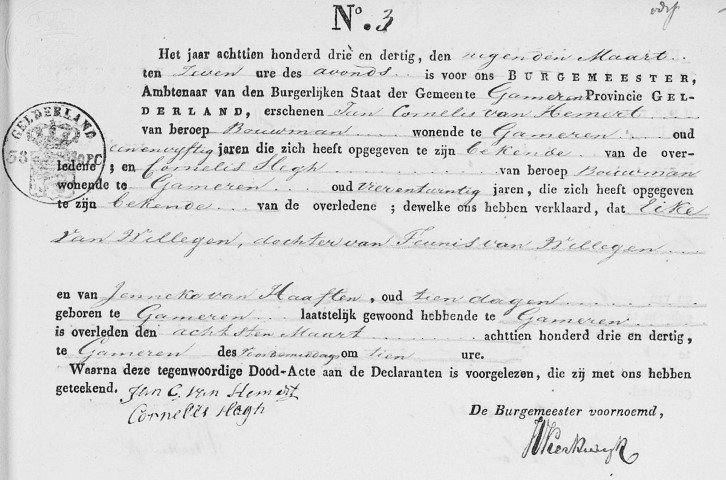 No. 3
overl
Het jaar achttien honderd drie en dertig, den negenden Maart
ten Zeven ure des avonds is voor ons BURGEMEESTER,
Ambtenaar van den Burgerlijken Staat der Gemeente Gameren Provincie GEL-
DERLAND, erschenen Jan Cornelis van Hemert
van beroep Bouwman wonende te Gameren oud
eenenvyftig jaren die zich heeft opgegeven te zijn bekende van de over-
ledene; en Cornelis Hegh van beroep Bouwman
wonende te Gameren oud vierentwintig jaren, die zich heeft opgegeven
te zijn bekende van de overledene; dewelke ons hebben verklaard, dat Eike
van Willegen, dochter van Teunis van Willegen
en van Jenneke van Haaften, oud tien dagen
geboren te Gameren laatstelijk gewoond hebbende te Gameren
is overleden den achtsten Maart achttien honderd drie en dertig,
te Gameren des voordemiddags om tien ure.
Waarna deze tegenwoordige Dood-Acte aan de Declaranten is voorgelezen, die zij met ons hebben
geteekend. Jan C. van Hemert
Cornelis Hegh
De Burgemeester voornoemd,
GELDERLAND
38 10PC